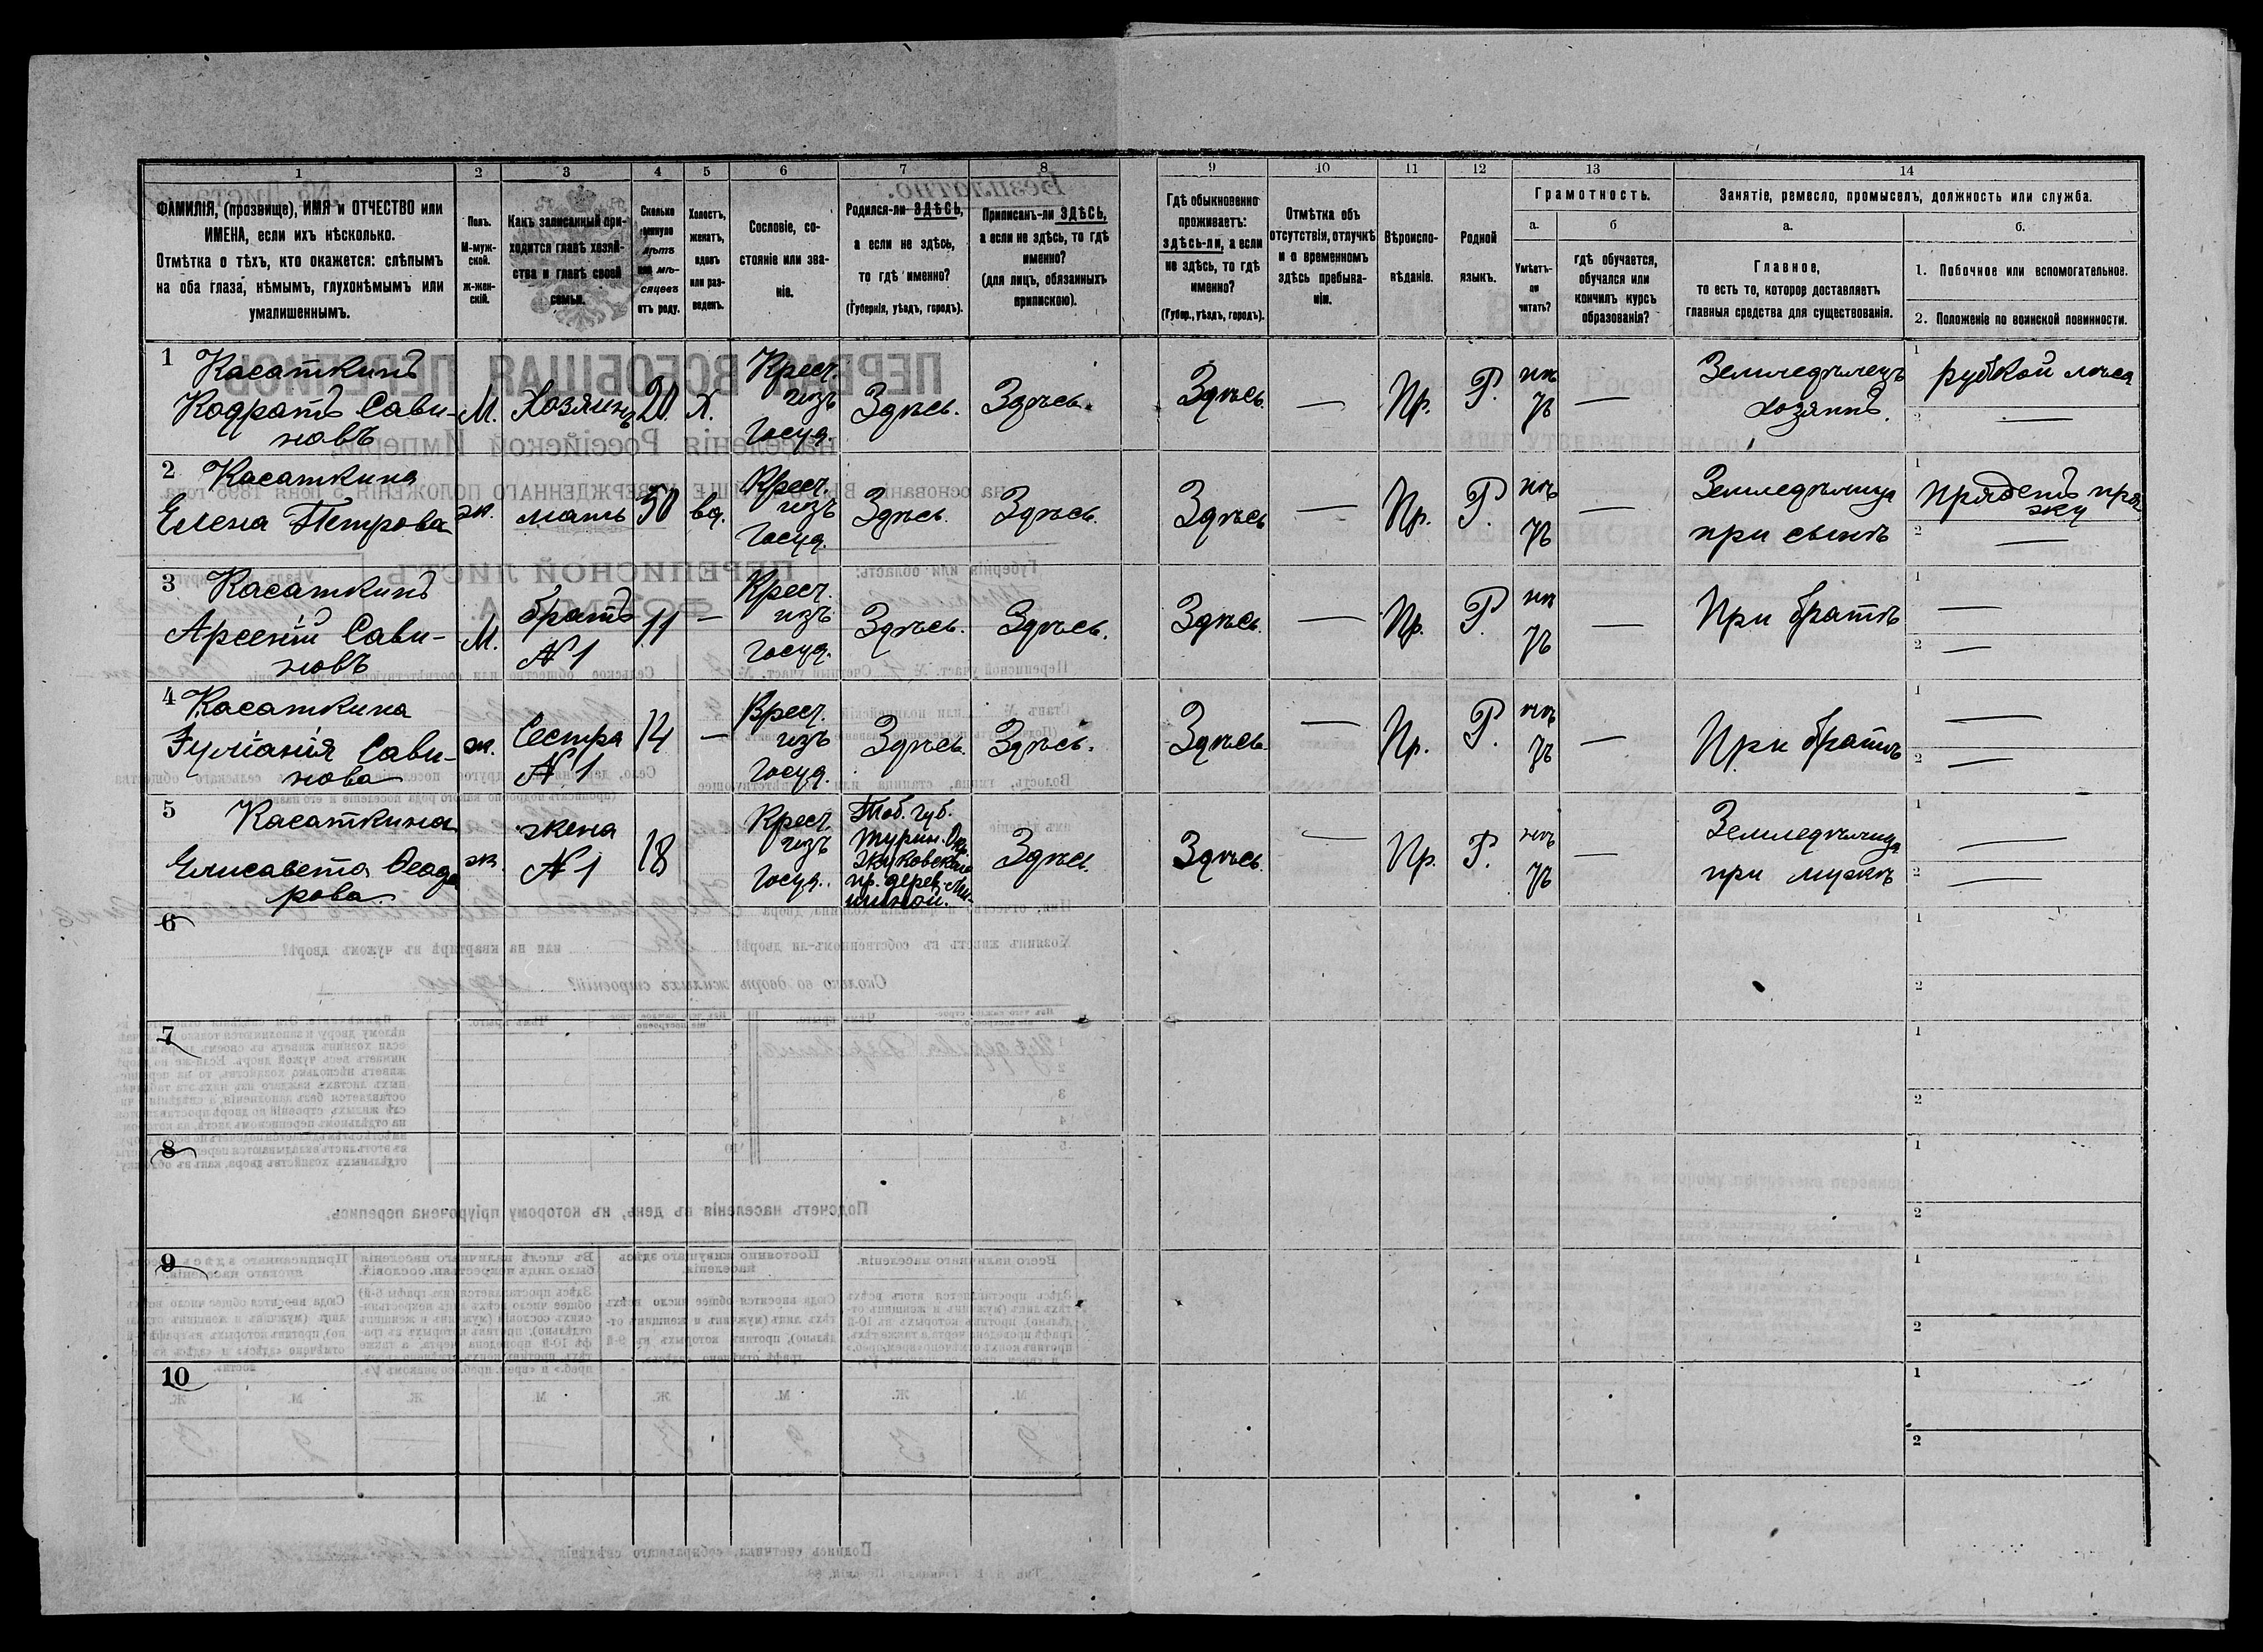 1 2 3 4 5 6 7 8 9 10 11 12 13 14
ФАМИЛІЯ, (прозвище), ИМЯ и ОТЧЕСТВО или
ИМЕНА, если ихъ нѣсколько.
Отмѣтка о тѣхъ, кто окажется: слѣпымъ
на оба глаза, нѣмымъ, глухонѣмымъ или
умалишеннымъ.
Полъ.
М-муж-
ской.
Ж-жен-
скій.
Какъ записанный при-
ходится главѣ хозяй-
ства и главѣ своей
семьи.
Сколько
минуло
лѣтъ
или мѣ-
сяцевъ
отъ роду.
Холостъ,
женатъ,
вдовъ
или раз-
веденъ.
Сословіе, со-
стояніе или зва-
ніе.
Родился-ли ЗДѢСЬ,
а если не здѣсь,
то гдѣ именно?
(Губернія, уѣздъ, городъ).
Приписанъ-ли ЗДѢСЬ,
а если не здѣсь, то гдѣ
именно?
(для лицъ, обязанныхъ
припискою).
Гдѣ обыкновенно
проживаетъ:
здѣсь-ли, а если
не здѣсь, то гдѣ
именно?
(Губер., уѣздъ, городъ).
Отмѣтка объ
отсутствіи, отлучкѣ
и о временномъ
здѣсь пребыва-
ніи.
Вѣроиспо-
вѣданіе.
Родной
языкъ.
Грамотность.
а.
Умѣетъ-
ли
читать?
б
гдѣ обучается,
обучался или
кончилъ курсъ
образованія?
Занятіе, ремесло, промыселъ, должность или служба.
а.
Главное,
то есть то, которое доставляетъ
главныя средства для существованія.
б.
1. Побочное или вспомогательное.
2. Положеніе по воинской повинности.
1 Касаткинъ
Кодратъ Сави-
новъ
М.
Хозяинъ
20
х.
Крест.
изъ
Госуд.
Здѣсь.
Здѣсь.
Здѣсь.
—
Пр.
Р.
нѣ
тъ
—
Земледѣлецъ
хозяинъ.
1 рубкой лѣса
2 —
2 Касаткина
Елена Петрова
ж.
мать
50
вд.
Крест.
изъ
Госуд.
Здѣсь.
Здѣсь.
Здѣсь
—
Пр.
Р.
нѣ
тъ
—
Земледѣлица
при сынѣ
1 Прядетъ пря
жу
2 —
3 Касаткинъ
Арсеній Сави-
новъ
М.
братъ
№ 1
11
—
Крест.
изъ
Госуд.
Здѣсь.
Здѣсь.
Здѣсь.
—
Пр.
Р.
нѣ
тъ
—
При братѣ
1 —
2 —
4 Касаткина
Іуліанія Сави-
нова
ж.
Сестра
№ 1
14
—
Крест.
изъ
Госуд.
Здѣсь.
Здѣсь.
Здѣсь.
—
Пр.
Р.
нѣ
тъ
—
При братѣ
1 —
2 —
5 Касаткина
Елисавета Ѳеодо
рова.
ж.
жена
№ 1
18
Крест.
изъ
Госуд.
Тоб. губ.
Турин. Окр.
Жуковской
пр. дерев.
Здѣсь.
Здѣсь.
—
Пр.
Р.
нѣ
тъ
—
Земледѣлица
при мужѣ
1 —
2 —
6
1
2
7
1
2
8
1
2
9
1
2
10
1
2